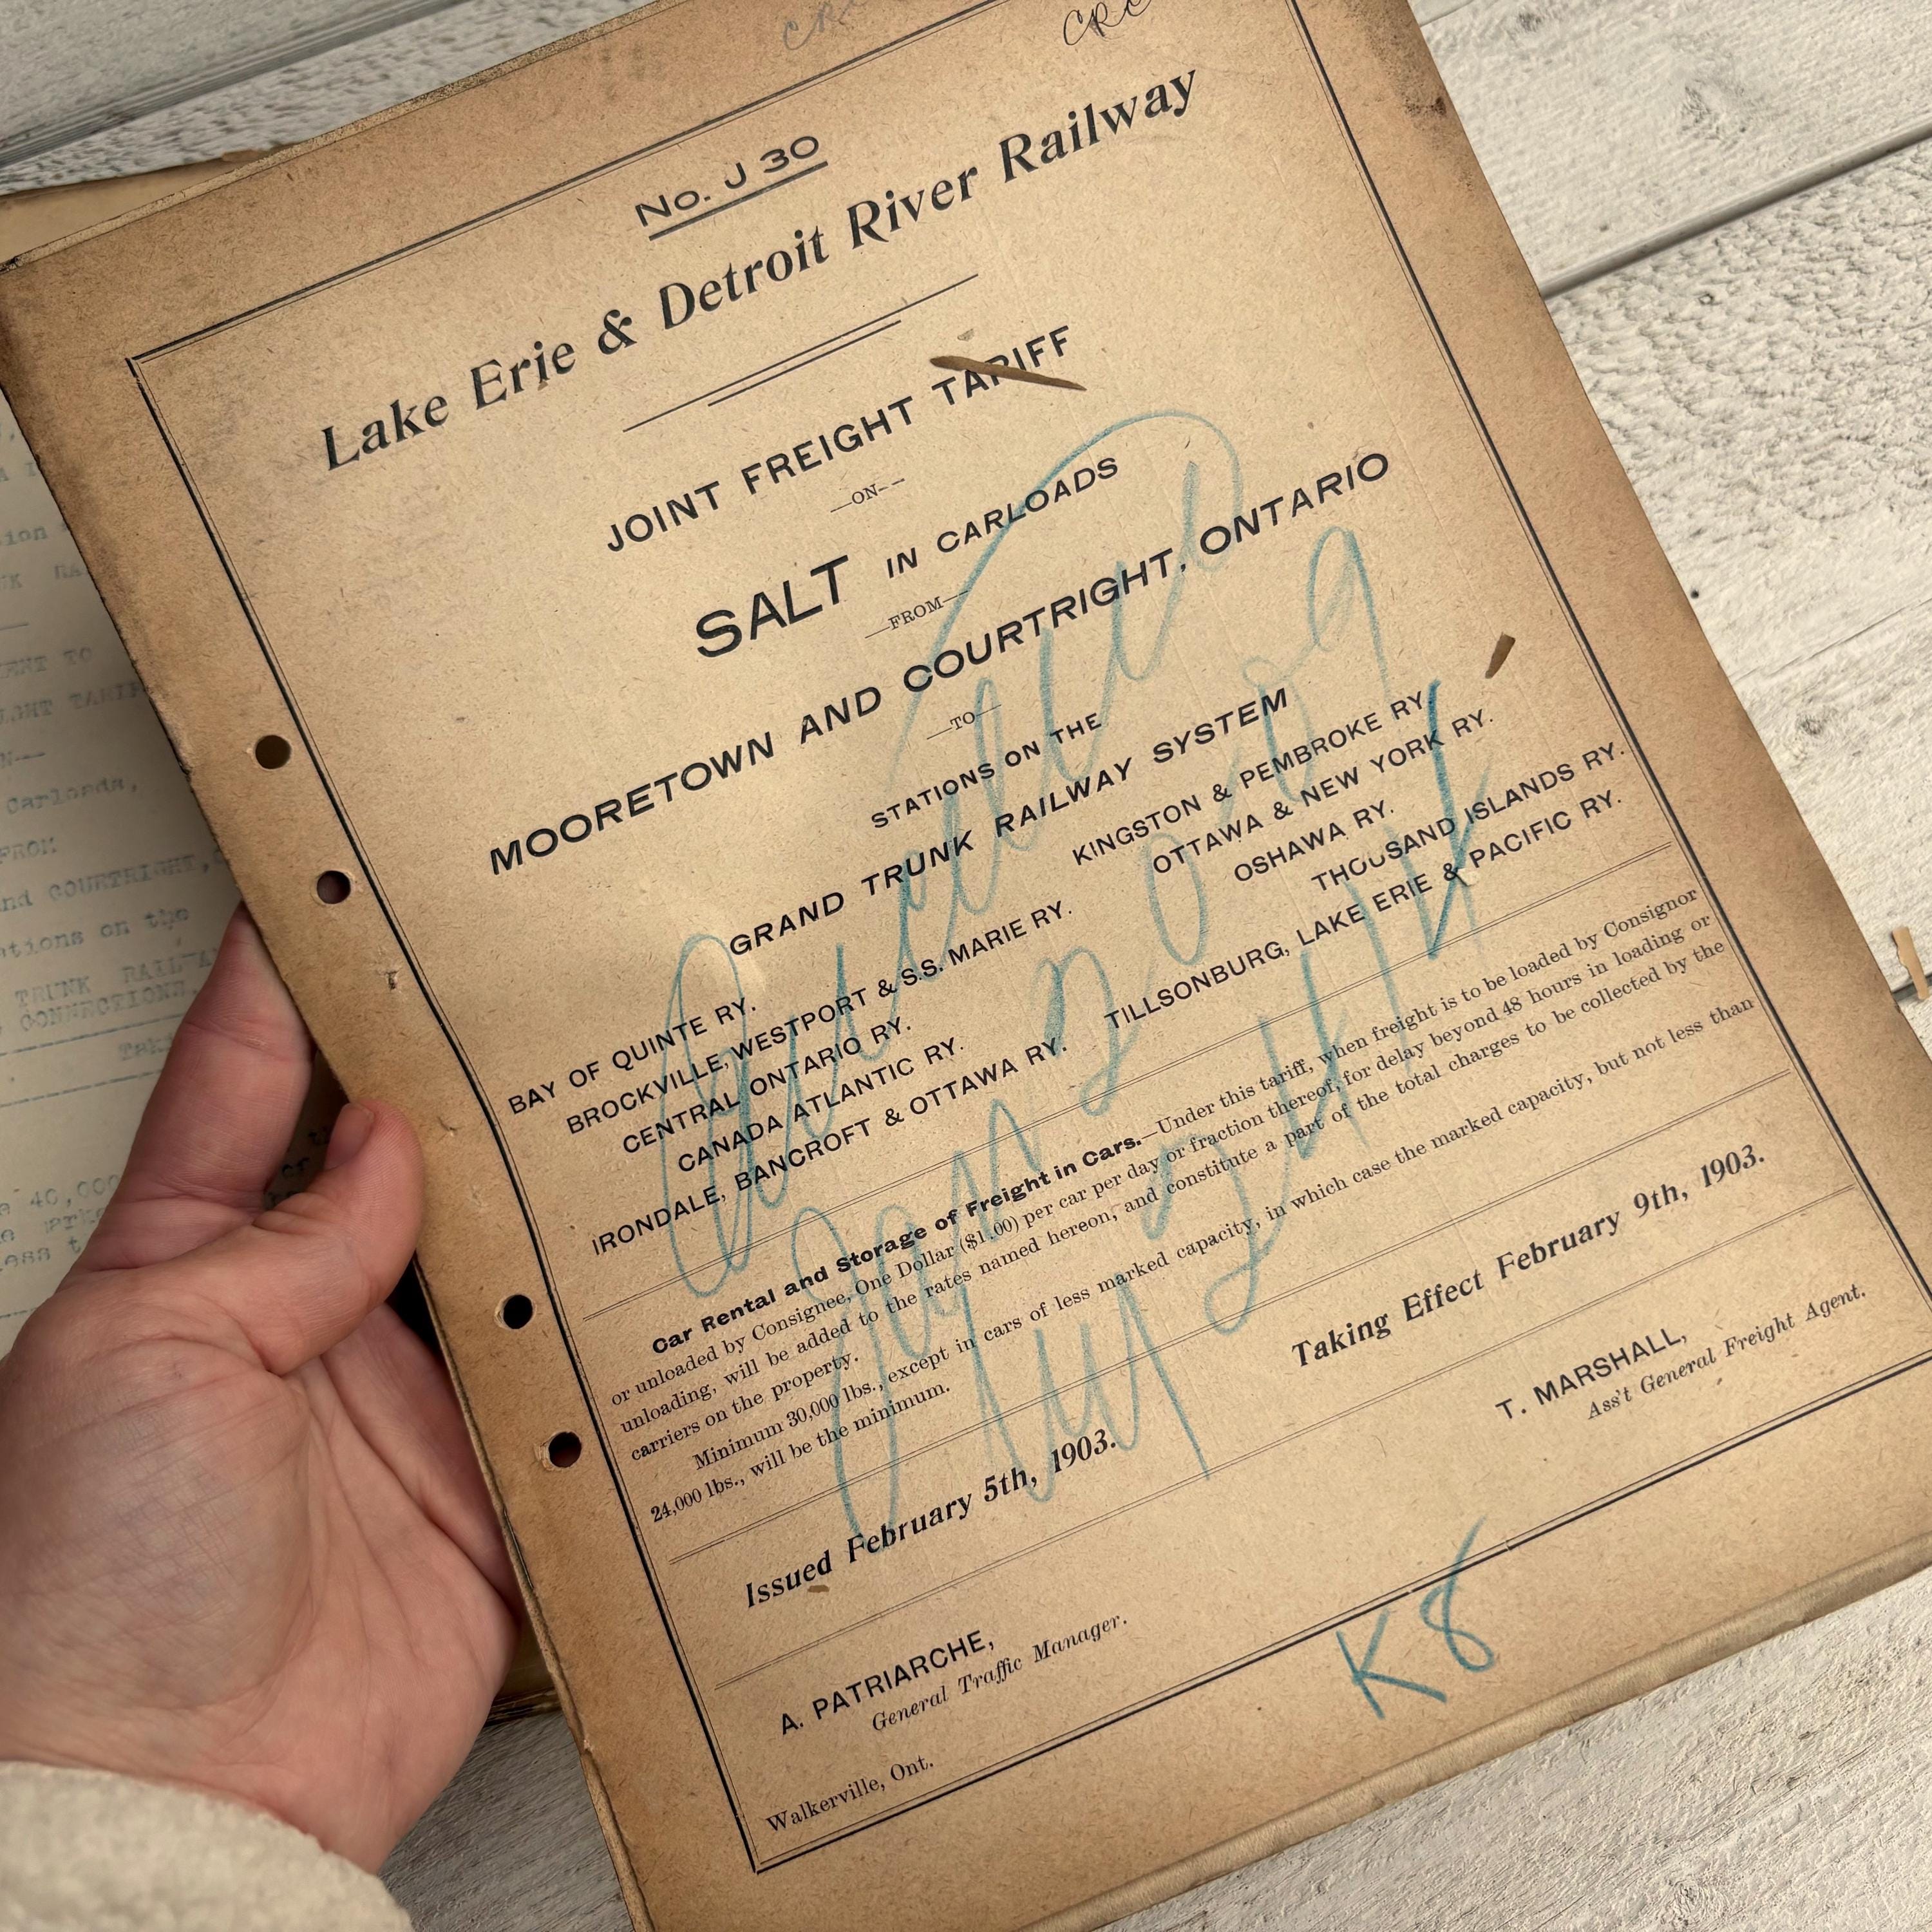 CRC
No. J 30
Lake Erie & Detroit River Railway
JOINT FREIGHT TARIFF
—ON—
SALT IN CARLOADS
—FROM—
MOORETOWN AND COURTRIGHT, ONTARIO
—TO—
STATIONS ON THE
GRAND TRUNK RAILWAY SYSTEM
BAY OF QUINTE RY.
BROCKVILLE, WESTPORT & S.S. MARIE RY.
CENTRAL ONTARIO RY.
CANADA ATLANTIC RY.
IRONDALE, BANCROFT & OTTAWA RY.
KINGSTON & PEMBROKE RY.
OTTAWA & NEW YORK RY.
OSHAWA RY.
THOUSAND ISLANDS RY.
TILLSONBURG, LAKE ERIE & PACIFIC RY.
Car Rental and Storage of Freight in Cars.—Under this tariff, when freight is to be loaded by Consignor
or unloaded by Consignee, One Dollar ($1.00) per car per day or fraction thereof, for delay beyond 48 hours in loading or
unloading, will be added to the rates named hereon, and constitute a part of the total charges to be collected by the
carriers on the property.
Minimum 30,000 lbs., except in cars of less marked capacity, in which case the marked capacity, but not less than
24,000 lbs., will be the minimum.
Issued February 5th, 1903.
Taking Effect February 9th, 1903.
A. PATRIARCHE,
General Traffic Manager.
T. MARSHALL,
Ass't General Freight Agent.
Walkerville, Ont.
K8
Carloads,
FROM
COURTRIGHT,
on the
TRUNK
CONNECTIONS,
40,000